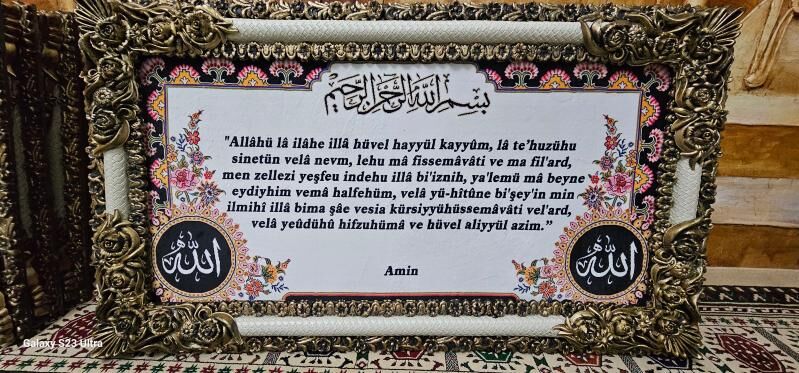 بسم الله الرحمن الرحيم
"Allâhü lâ ilâhe illâ hüvel hayyül kayyûm, lâ te'huzühu
sinetün velâ nevm, lehu mâ fissemâvâti ve ma fil'ard,
men zellezi yeşfeu indehu illâ bi'iznih, ya'lemü mâ beyne
eydiyhim vemâ halfehüm, velâ yü-hîtûne bi'şey'in min
ilmihî illâ bima şâe vesia kürsiyyühüssemâvâti vel'ard,
velâ yeûdühû hifzuhümâ ve hüvel aliyyül azim."
الله
الله
Amin
Galaxy S23 Ultra